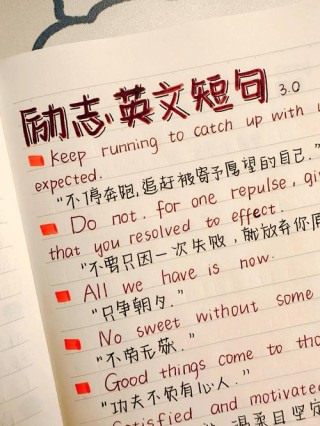 励志·英文短句 3.0
Keep running to catch up with
expected.
"不停奔跑,追赶被寄予愿望的自己."
Do not. for one repulse,
that you resolved to effect.
"不要只因一次失败,就放弃你
All we have is now.
"只争朝夕."
No sweet without some
"不劳无获."
Good things come to
"功夫不负有心人."
Satisfied and motivated
温柔且坚定